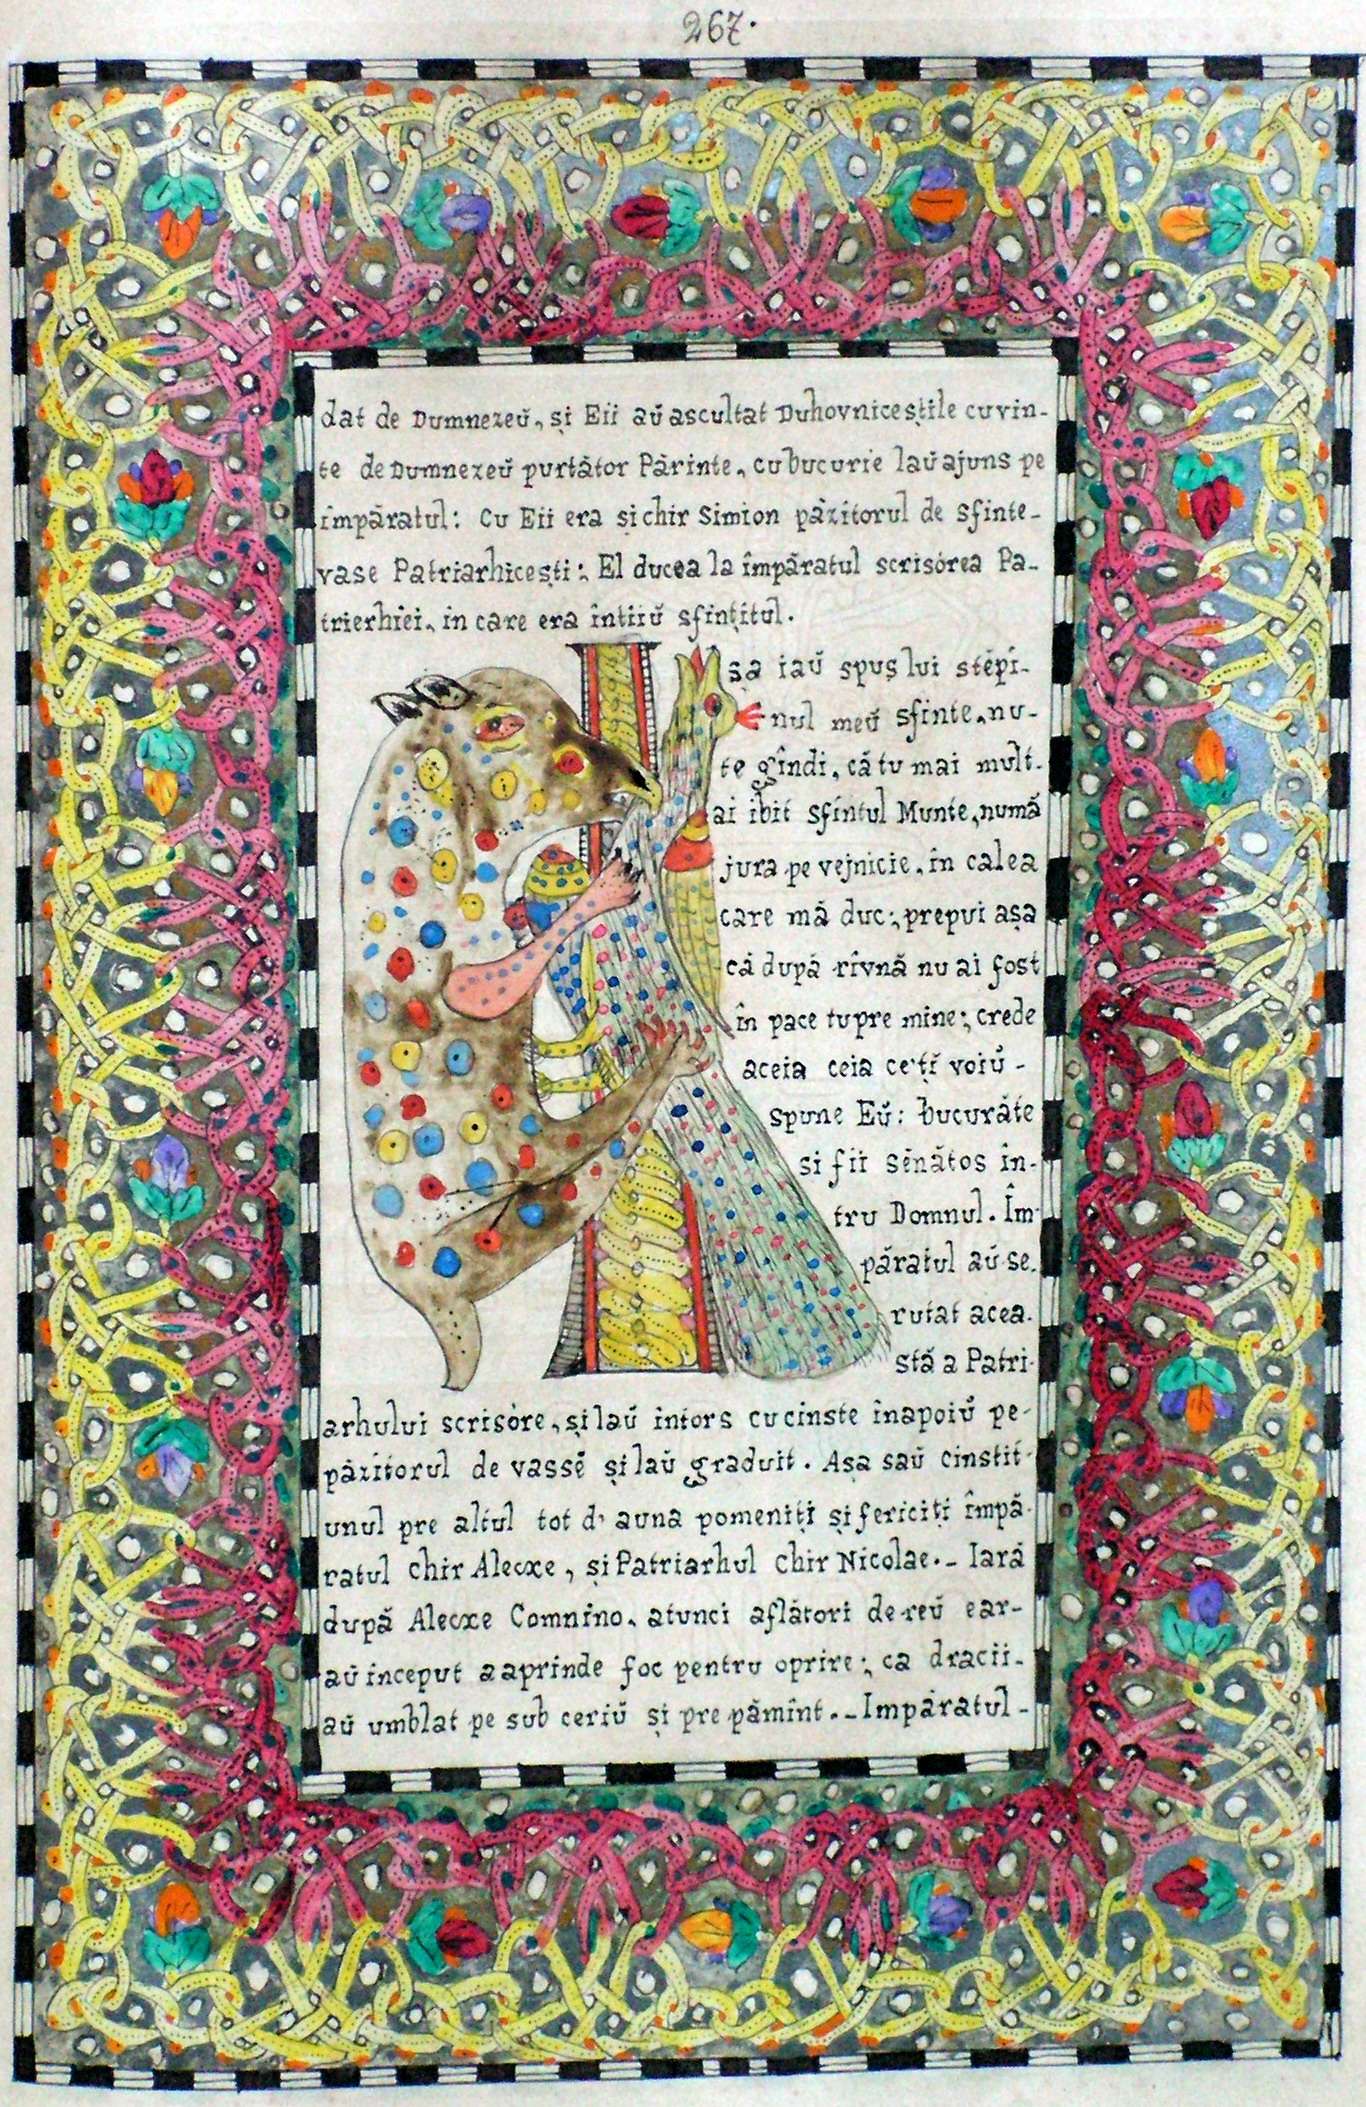 267.
dat de Dumnezeŭ, și Eii aŭ ascultat Duhovniceștile cuvin-
te de Dumnezeŭ purtător Părinte, cu bucurie laŭ ajuns pe
împăratul: Cu Eii era și chir Simion păzitorul de sfinte-
vase Patriarhicești: El ducea la împăratul scrisórea Pa-
trierhiei, in care era întiiŭ sfințitul.
Așa iaŭ spus lui stĕpî-
nul meŭ sfinte, nu-
te gîndi, că tu mai mult.
ai ibit sfîntul Munte, numă
jura pe vejnicie, în calea
care mă duc: prepui așa
că după rîvnă nu ai fost
în pace tu pre mine: crede
aceia ceia ce'ți voiŭ -
spune Eŭ: bucurăte
si fii sĕnătos în-
tru Domnul. Îm-
păratul aŭ se.
rutat acea.
stă a Patri-
arhului scrisóre, și laŭ întors cu cinste înapoiŭ pe-
păzitorul de vassĕ și laŭ graduit. Așa saŭ cinstit-
unul pre altul tot d' auna pomeniți și fericiți împă-
ratul chir Alecxe, și Patriarhul chir Nicolae. - Iară
după Alecxe Comnino, atunci aflători de reŭ ear-
aŭ inceput a aprinde foc pentru oprire: ca dracii-
aŭ umblat pe sub ceriŭ și pre pămînt. - Impăratul -